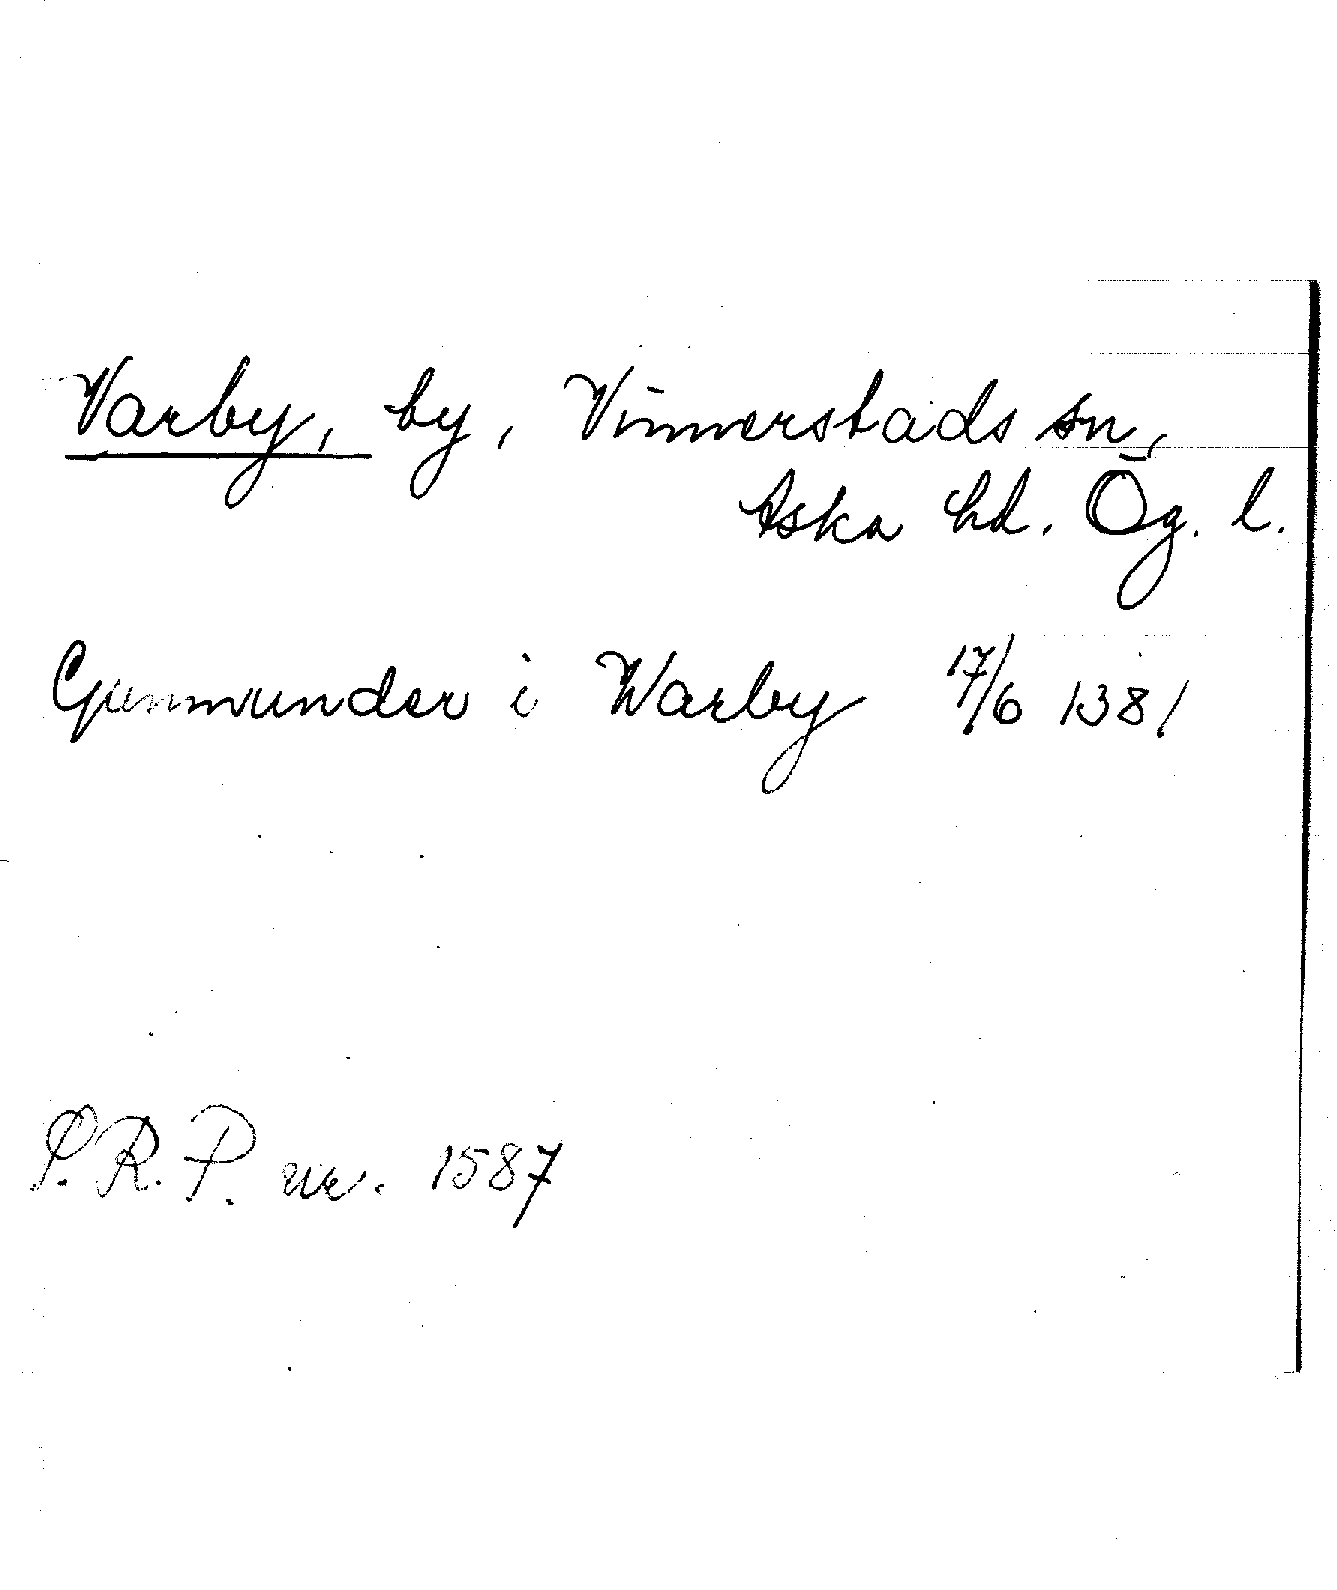 Varby, by, Vinnerstads sn,
Aska hd. Ög. l.
Gunmunder i Warby 17/6 1381
S.R.P. nr. 1587